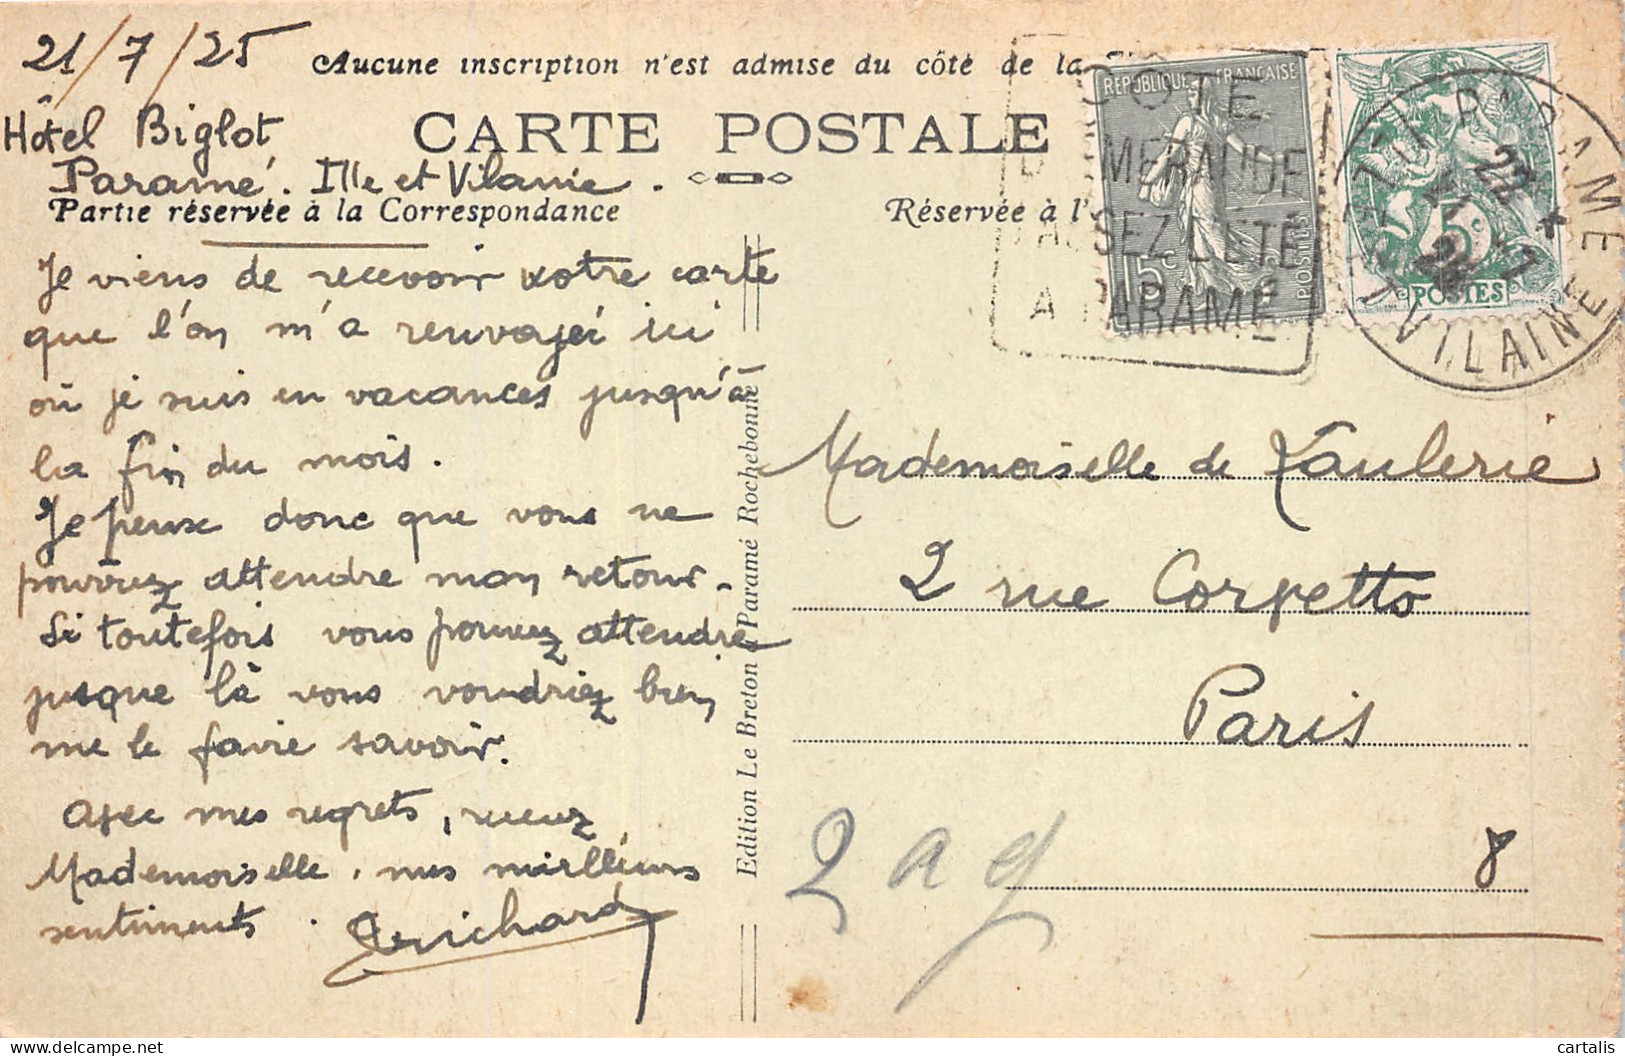 21/7/25
Aucune inscription n'est admise du côté de la
Hôtel Biglot
CARTE POSTALE
Paramé. Ille et Vilaine.
Partie réservée à la Correspondance
Réservée à l'
RÉPUBLIQUE FRANÇAISE
15c
POSTES
5c
POSTES
COTE
D'EMERAUDE
PASSEZ L'ÉTÉ
A PARAMÉ
PARAMÉ
22
ILLE ET VILAINE
Je viens de recevoir votre carte
que l'on m'a renvoyée ici
où je suis en vacances jusqu'à
la fin du mois.
Je pense donc que vous ne
pourrez attendre mon retour.
Si toutefois vous pouvez attendre
jusque là vous voudriez bien
me le faire savoir.
Avec mes regrets, recevez
Mademoiselle, mes meilleurs
sentiments.
Edition Le Breton Paramé Rochebonne
Mademoiselle de
2 rue Corvetto
Paris
8
2 a g
cartalis
delcampe.net